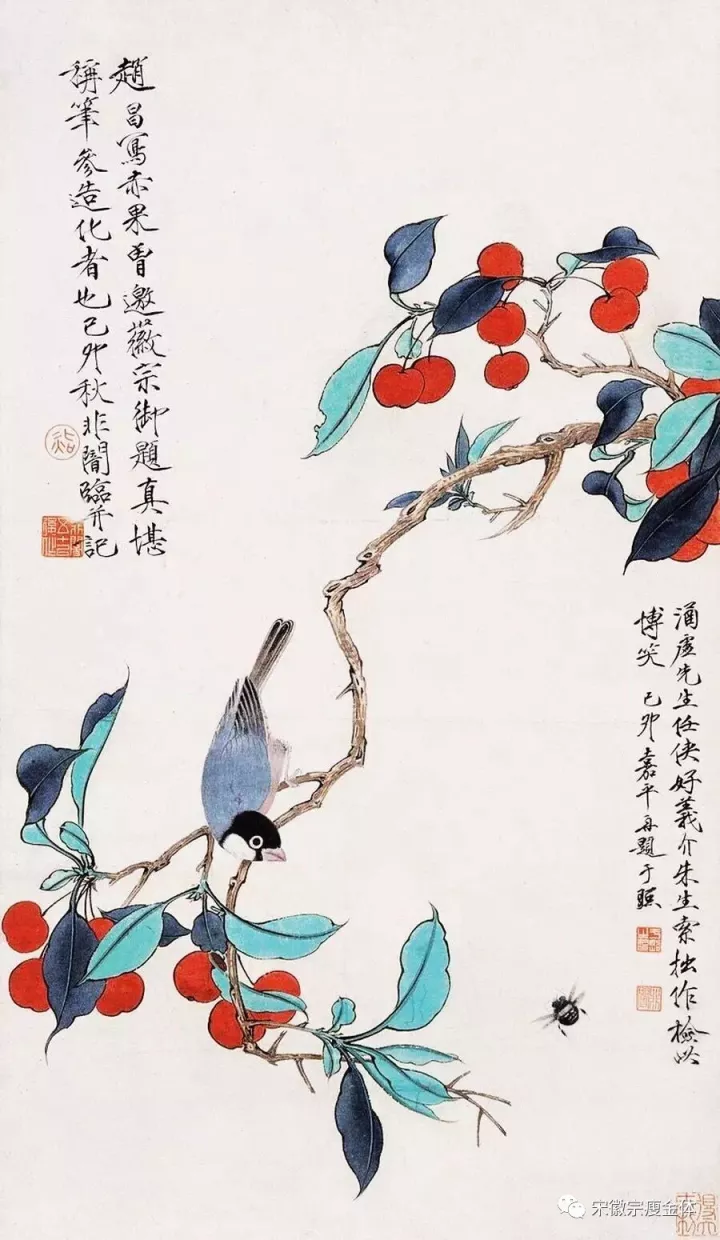 趙昌寫赤果曾邀徽宗御題真堪
稱筆參造化者也己卯秋非闇臨并記
涌虛先生任俠好義介朱生索拙作檢以
博笑 己卯嘉平再題于照
宋徽宗瘦金体